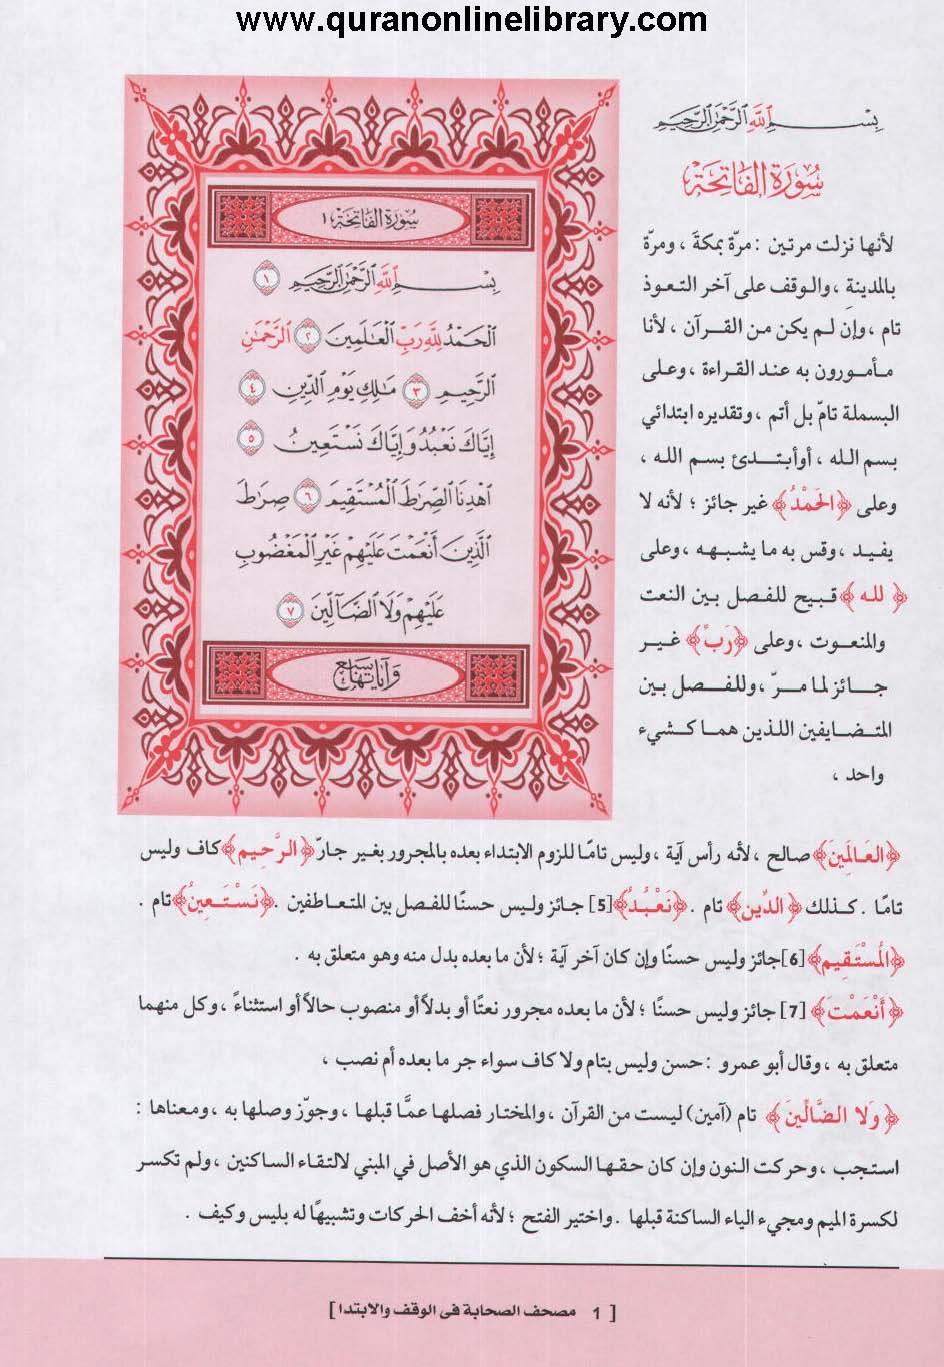 www.quranonlinelibrary.com
بِسْـــــمِ ٱللَّهِ ٱلرَّحْمَٰنِ ٱلرَّحِيمِ
سُورَةُ الفَاتِحَةِ
لأنها نزلت مرتين : مرّة بمكة ، ومرّة
بالمدينة ، والوقف على آخر التعوذ
تام ، وإن لم يكن من القرآن ، لأنا
مأمورون به عند القراءة ، وعلى
البسملة تامّ بل أتم ، وتقديره ابتدائي
بسم الله ، أوأبتدئ بسم الله ،
وعلى ﴿الحَمْدُ﴾ غير جائز ؛ لأنه لا
يفيد ، وقس به ما يشبهه ، وعلى
﴿ لله ﴾ قبيح للفصل بين النعت
والمنعوت ، وعلى ﴿رَبِّ﴾ غير
جائز لما مرّ ، وللفصل بين
المتضايفين اللذين هما كشيء
واحد ،
سُورَةُ الفَاتِحَةِ ١
بِسْـــــمِ ٱللَّهِ ٱلرَّحْمَٰنِ ٱلرَّحِيمِ ١
ٱلْحَمْدُ لِلَّهِ رَبِّ ٱلْعَٰلَمِينَ ٢ ٱلرَّحْمَٰنِ
ٱلرَّحِيمِ ٣ مَٰلِكِ يَوْمِ ٱلدِّينِ ٤
إِيَّاكَ نَعْبُدُ وَإِيَّاكَ نَسْتَعِينُ ٥
ٱهْدِنَا ٱلصِّرَٰطَ ٱلْمُسْتَقِيمَ ٦ صِرَٰطَ
ٱلَّذِينَ أَنْعَمْتَ عَلَيْهِمْ غَيْرِ ٱلْمَغْضُوبِ
عَلَيْهِمْ وَلَا ٱلضَّآلِّينَ ٧
وَآيَاتُهَا سَبْعٌ
﴿العَالَمِينَ﴾ صالح ، لأنه رأس آية ، وليس تامًا للزوم الابتداء بعده بالمجرور بغير جارّ ﴿الرَّحِيمِ﴾ كاف وليس
تامًا . كذلك ﴿ الدِّينِ﴾ تام . ﴿نَعْبُدُ﴾[5] جائز وليس حسنًا للفصل بين المتعاطفين . ﴿نَسْتَعِينُ﴾ تام .
﴿المُسْتَقِيم﴾[6]جائز وليس حسنًا وإن كان آخر آية ؛ لأن ما بعده بدل منه وهو متعلق به .
﴿أَنْعَمْتَ﴾ [7] جائز وليس حسنًا ؛ لأن ما بعده مجرور نعتًا أو بدلاً أو منصوب حالاً أو استثناءً ، وكل منهما
متعلق به ، وقال أبو عمرو : حسن وليس بتام ولا كاف سواء جر ما بعده أم نصب ،
﴿وَلا الضَّالِّينَ ﴾ تام (آمين) ليست من القرآن ، والمختار فصلها عمَّا قبلها ، وجوّز وصلها به ، ومعناها :
استجب ، وحركت النون وإن كان حقها السكون الذي هو الأصل في المبني لالتقاء الساكنين ، ولم تكسر
لكسرة الميم ومجيء الياء الساكنة قبلها . واختير الفتح ؛ لأنه أخف الحركات وتشبيهًا له بليس وكيف .
[ 1 مصحف الصحابة فى الوقف والابتدا ]